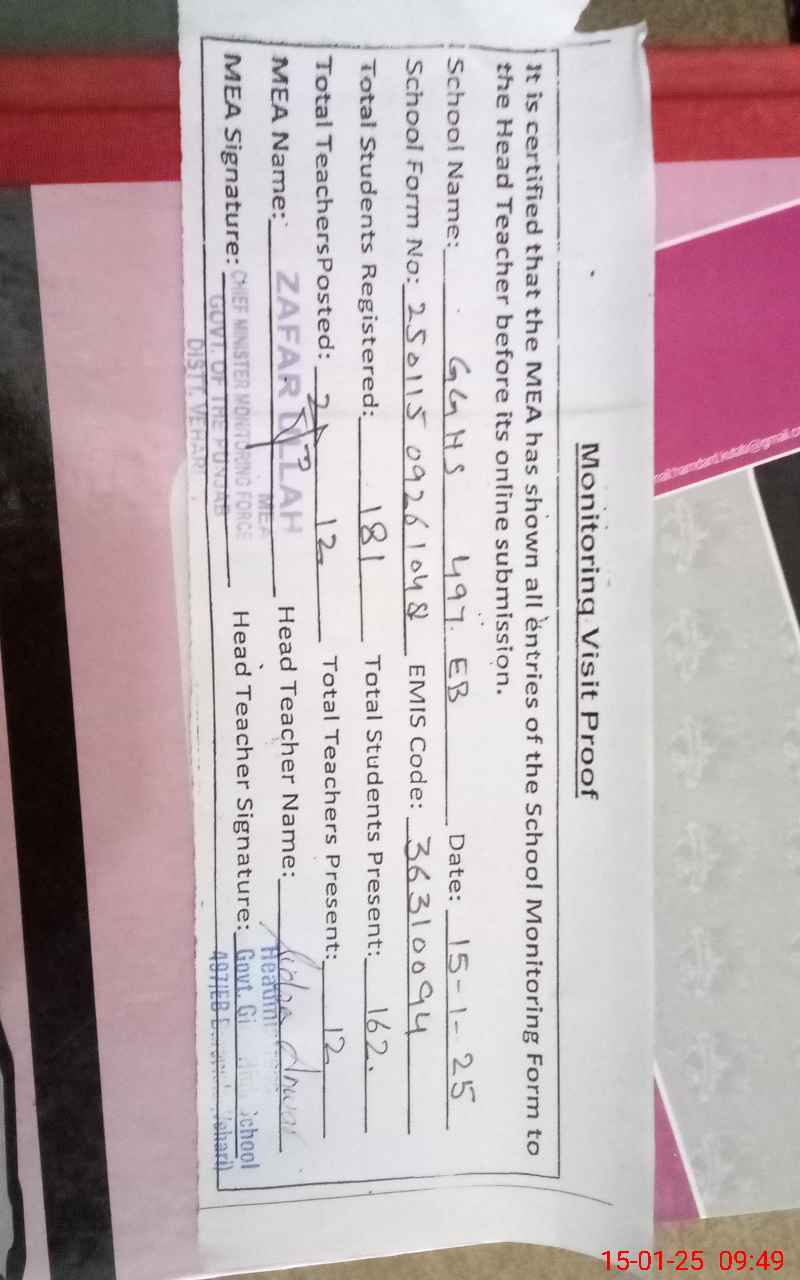 Monitoring Visit Proof
It is certified that the MEA has shown all entries of the School Monitoring Form to
the Head Teacher before its online submission.
School Name: GGHS 497. EB Date: 15-1-25
School Form No: 250115 09261048 EMIS Code: 36310094
Total Students Registered: 181 Total Students Present: 162.
Total TeachersPosted: 12 Total Teachers Present: 12
MEA Name: ZAFAR ULLAH Head Teacher Name: Anwar
MEA
MEA Signature: Head Teacher Signature:
CHIEF MINISTER MONITORING FORCE
GOVT. OF THE PUNJAB
DISTT. VEHARI
Govt. School
497/EB Vehari)
15-01-25 09:49